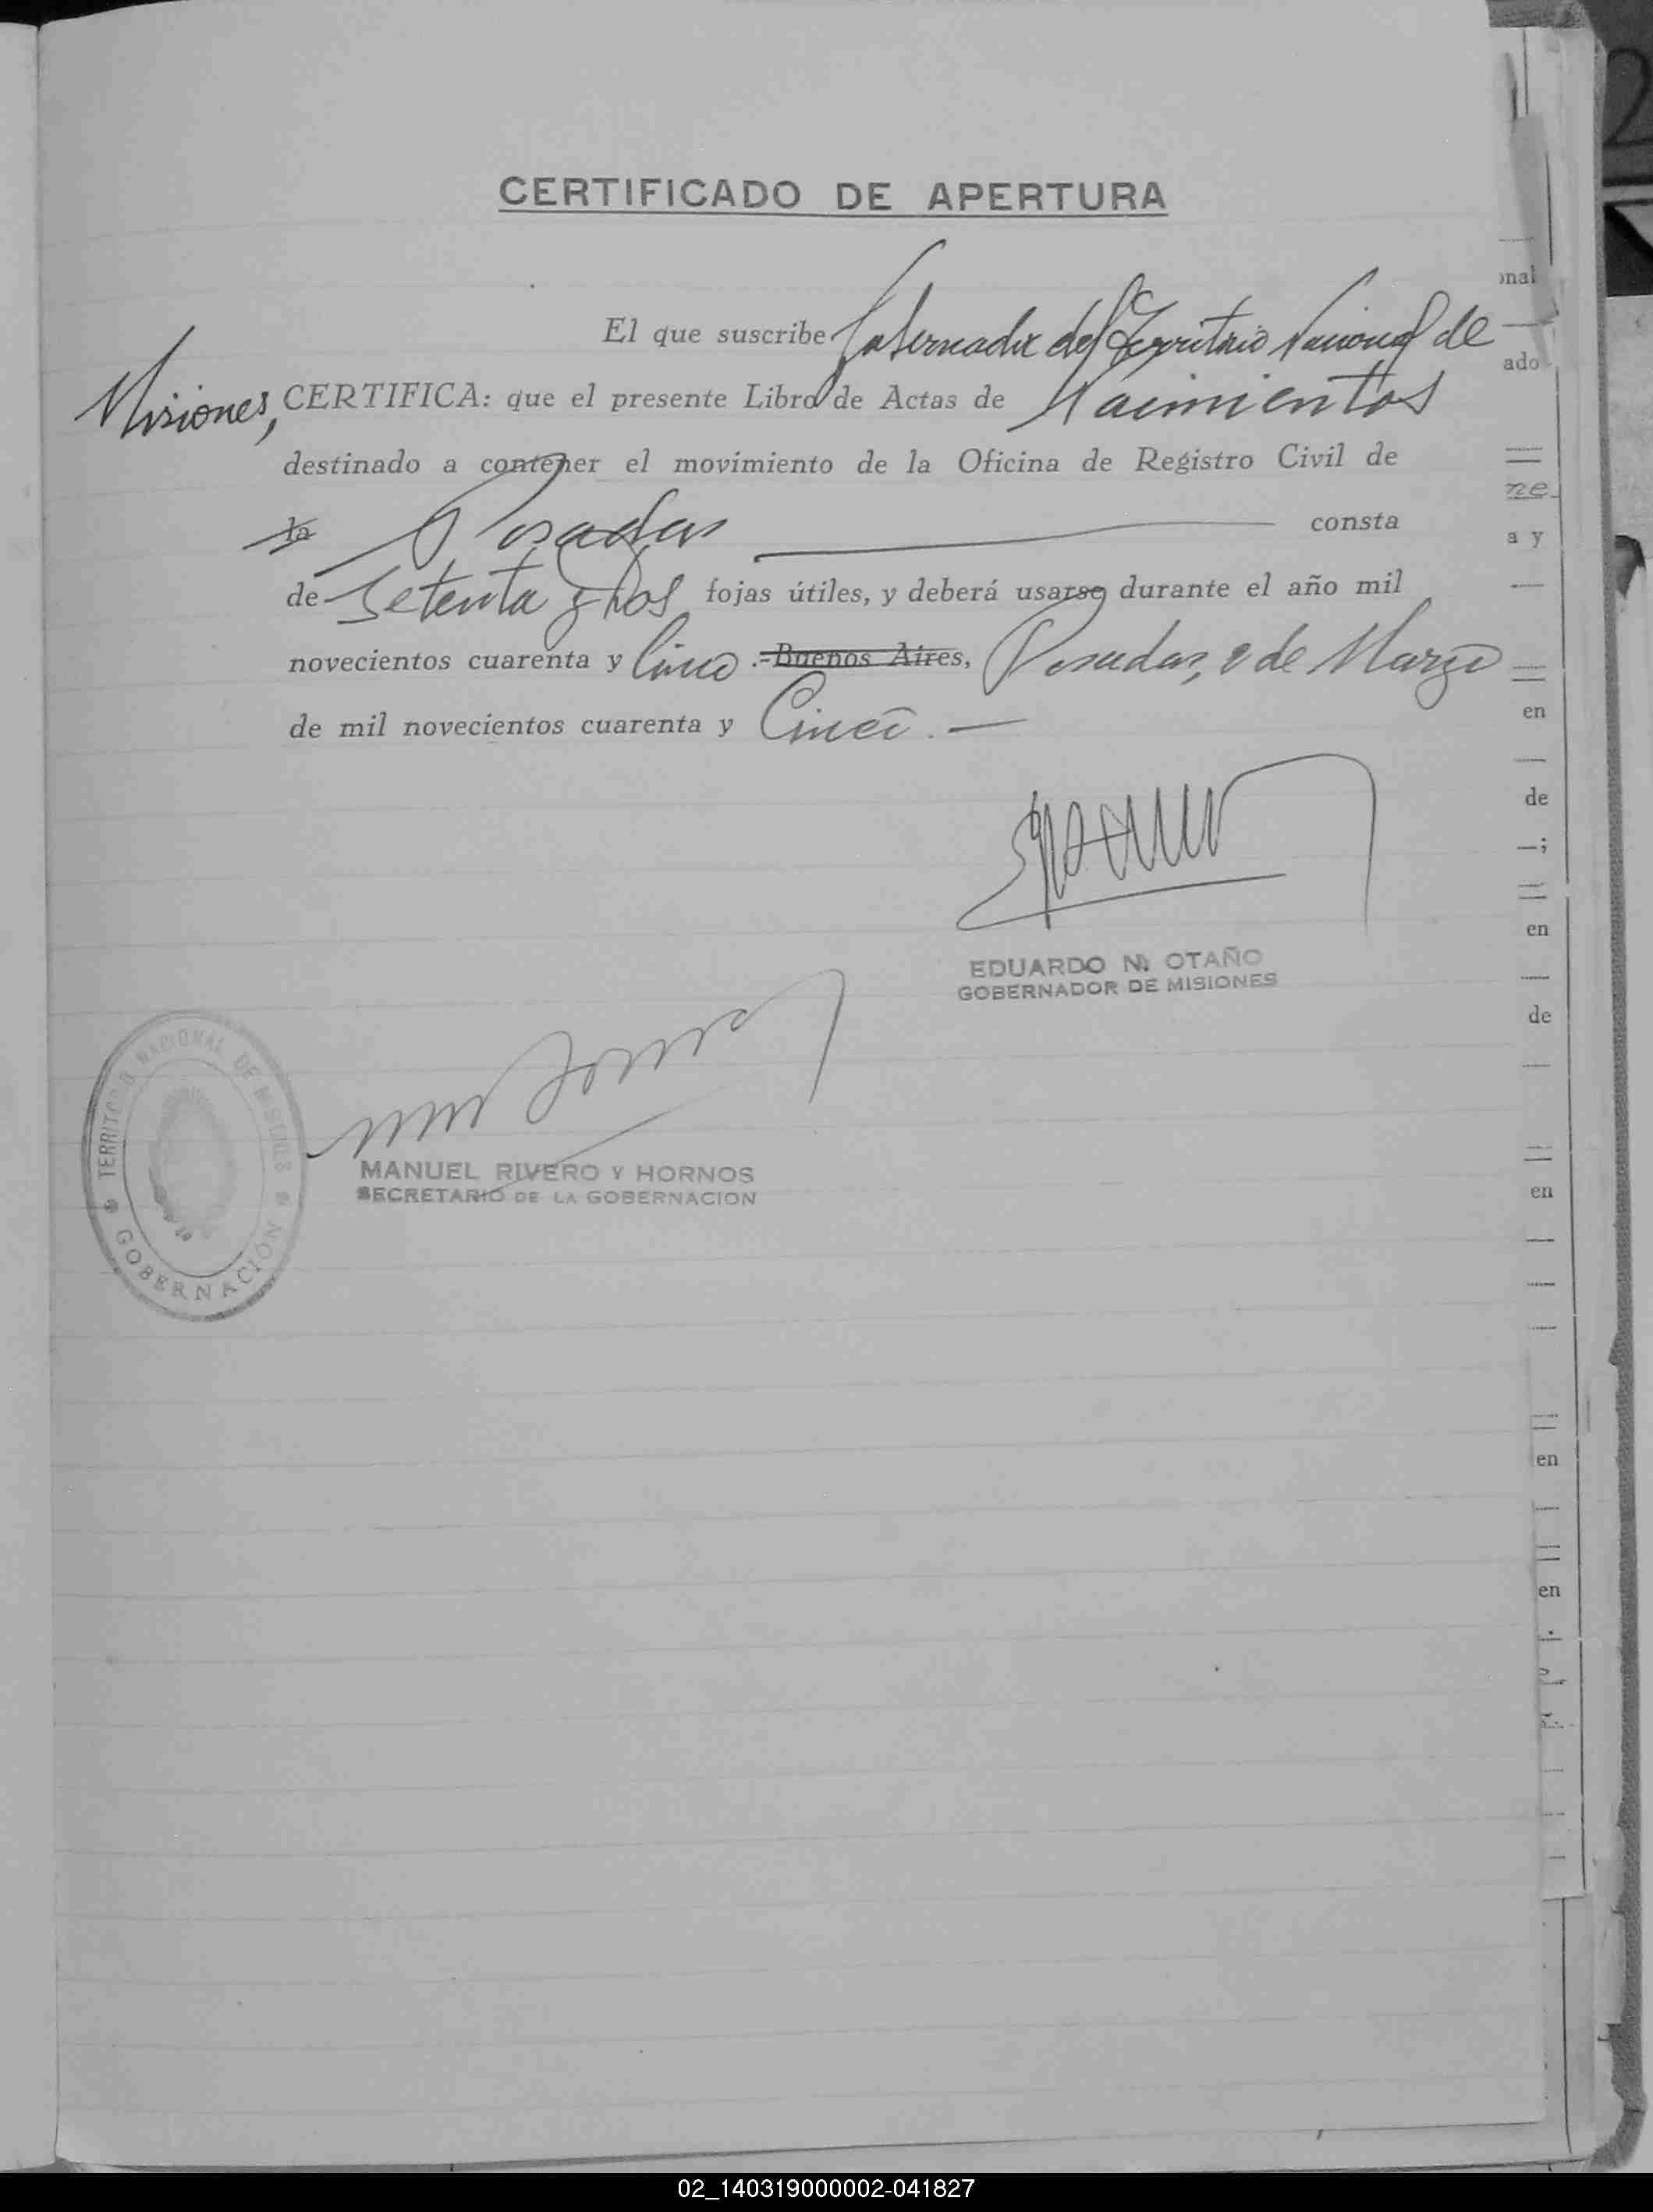 CERTIFICADO DE APERTURA
El que suscribe Gobernador del Territorio Nacional de
Misiones, CERTIFICA: que el presente Libro de Actas de Nacimientos
destinado a contener el movimiento de la Oficina de Registro Civil de
la Posadas consta
de Setenta y dos fojas útiles, y deberá usarse durante el año mil
novecientos cuarenta y Cinco.- Buenos Aires, Posadas, de Marzo
de mil novecientos cuarenta y Cinco.-
EDUARDO N. OTAÑO
GOBERNADOR DE MISIONES
MANUEL RIVERO Y HORNOS
SECRETARIO DE LA GOBERNACION
TERRITORIO NACIONAL DE MISIONES
GOBERNACIÓN
onal
ado
ne
a y
en
de
en
de
en
en
en
02_140319000002-041827